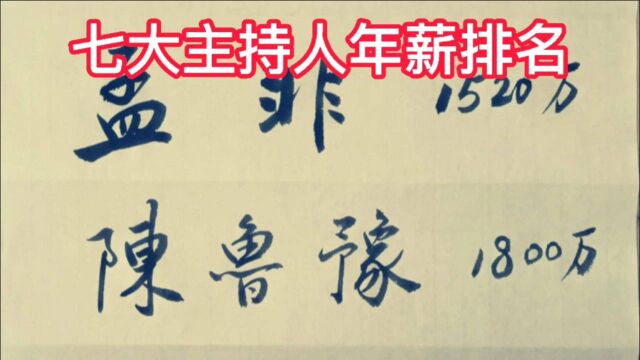 七大主持人年薪排名
孟非 1520万
陳魯豫 1800万